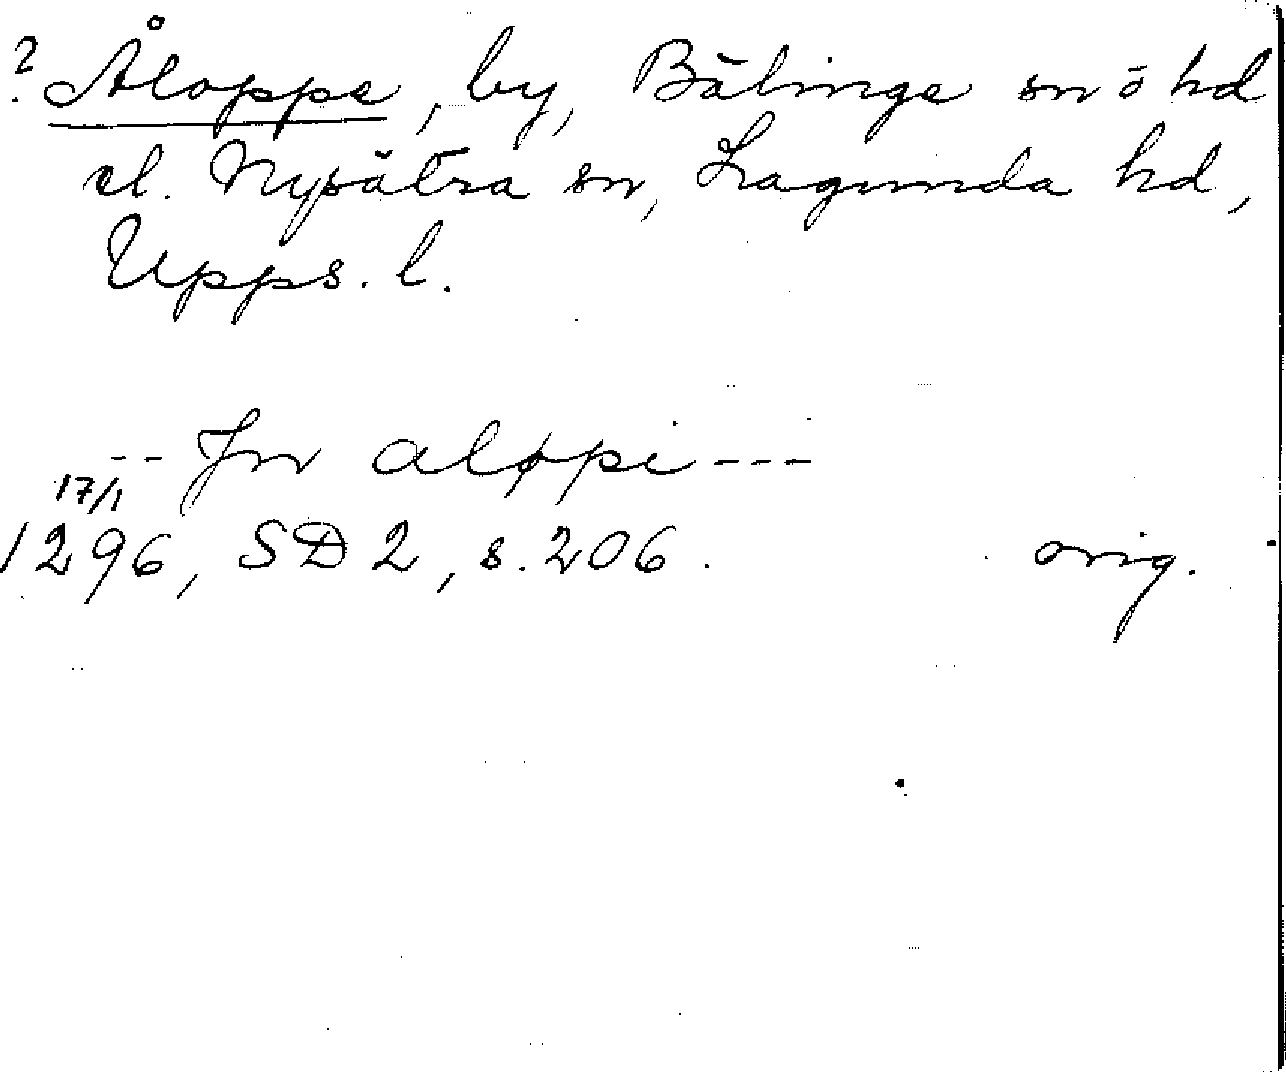 ? Åloppe, by, Bälinge sn ö hd
el. Nysätra sn, Lagunda hd,
Upps. l.
-- Jn aløpi ---
17/1
1296, SD 2, s. 206. orig.